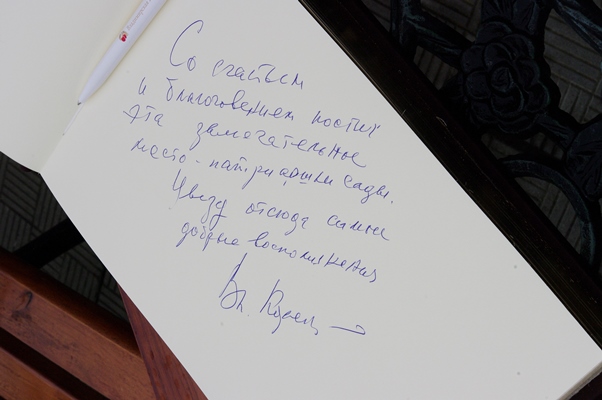 Со счастьем
и благоговением постил
эта замечательное
место - патриаршии сады.
Увезу отсюда самые
добрые воспоминания
Вл.